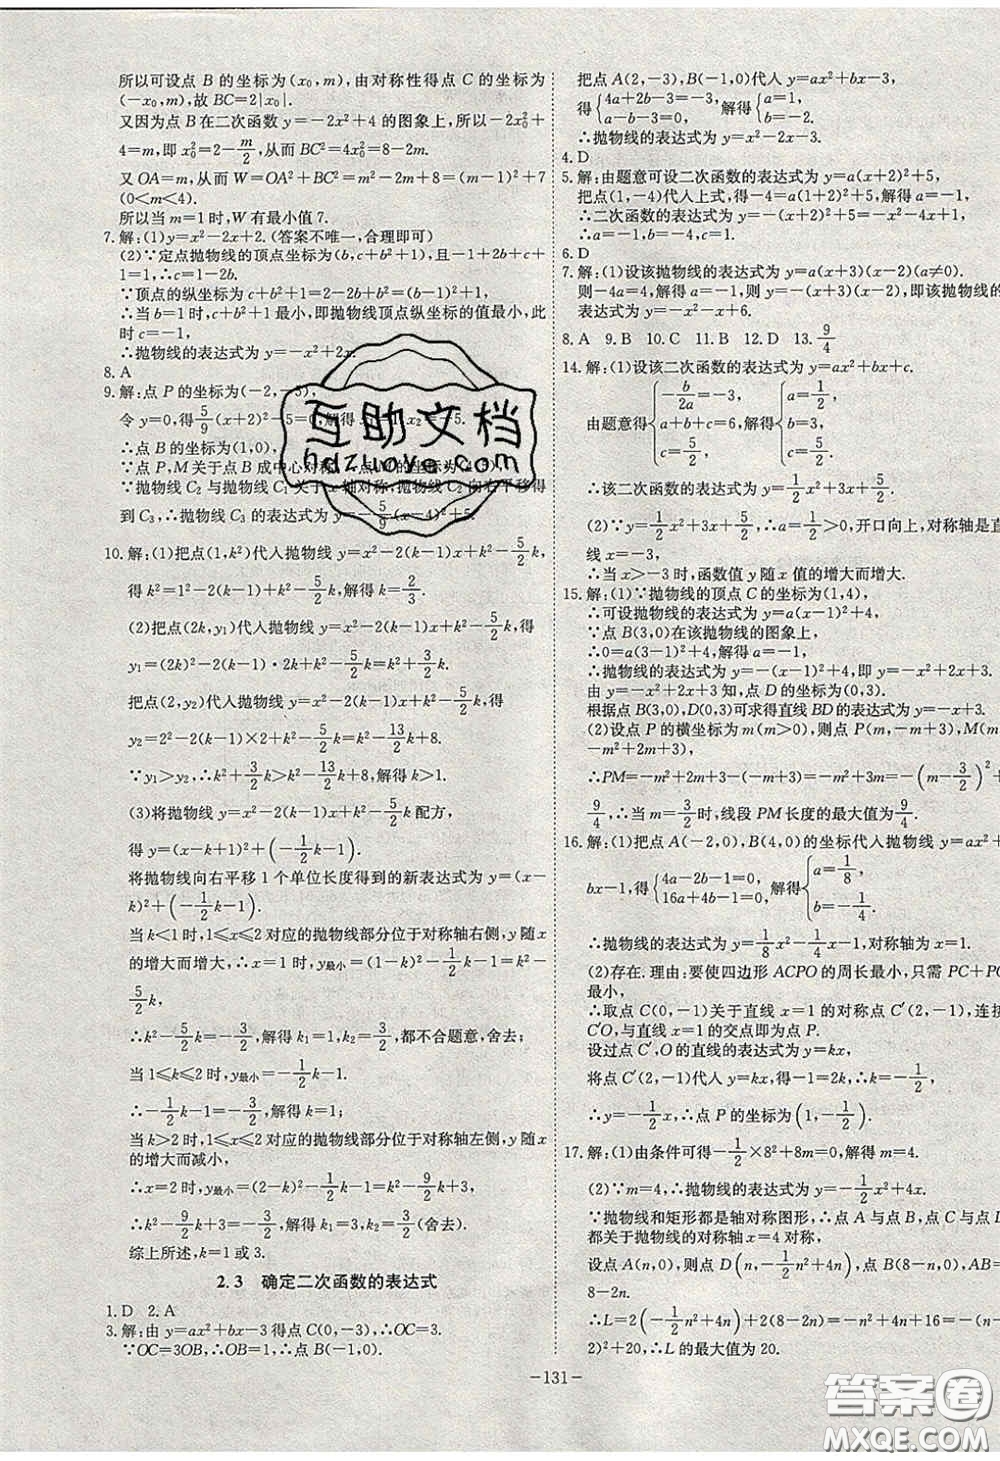 所以可设点 B 的坐标为(x₀,m),由对称性得点 C 的坐标为
(-x₀,m),故 BC=2|x₀|.
又因为点 B 在二次函数 y=-2x²+4 的图象上,所以-2x₀²+
4=m,即 x₀²=2-m/2,从而 BC²=4x₀²=8-2m.
又 OA=m,从而 W=OA²+BC²=m²-2m+8=(m-1)²+7
(0<m<4).
所以当 m=1 时,W 有最小值 7.
7.解:(1)y=x²-2x+2.(答案不唯一,合理即可)
(2)∵定点抛物线的顶点坐标为(b,c+b²+1),且-1+2b+c+1=1,∴c=1-2b.
∵顶点的纵坐标为 c+b²+1=2-2b+b²=(b-1)²+1,
∴当 b=1 时,c+b²+1 最小,即抛物线顶点纵坐标的值最小,此
时 c=-1,
∴抛物线的表达式为 y=-x²+2x.
8.A
9.解:点 P 的坐标为(-2,-5),
令 y=0,得5/9(x+2)²-5=0,解得 x₂=-5.
∴点 B 的坐标为(1,0),
∵点 P,M 关于点 B 成中心对称,∴点 M 的坐标为(4,5),
∵抛物线 C₂ 与抛物线 C₁ 关于 x 轴对称,抛物线 C₂ 向右平移得
到 C₃,∴抛物线 C₃ 的表达式为 y=-5/9(x-4)²+5.
10.解:(1)把点(1,k²)代入抛物线 y=x²-2(k-1)x+k²-5/2k,
得 k²=1²-2(k-1)+k²-5/2k,解得 k=2/3.
(2)把点(2k,y₁)代入抛物线 y=x²-2(k-1)x+k²-5/2k,得
y₁=(2k)²-2(k-1)·2k+k²-5/2k=k²+3/2k.
把点(2,y₂)代入抛物线 y=x²-2(k-1)x+k²-5/2k,得
y₂=2²-2(k-1)×2+k²-5/2k=k²-13/2k+8.
∵y₁>y₂,∴k²+3/2k>k²-13/2k+8,解得 k>1.
(3)将抛物线 y=x²-2(k-1)x+k²-5/2k 配方,
得 y=(x-k+1)²+(-1/2k-1).
将抛物线向右平移 1 个单位长度得到的新表达式为 y=(x-
k)²+(-1/2k-1).
当 k<1 时,1≤x≤2 对应的抛物线部分位于对称轴右侧,y 随 x
的增大而增大,∴x=1 时,y最小=(1-k)²-1/2k-1=k²-
5/2k,
∴k²-5/2k=-3/2,解得 k₁=1,k₂=3/2,都不合题意,舍去;
当 1≤k≤2 时,y最小=-1/2k-1,
∴-1/2k-1=-3/2,解得 k=1;
当 k>2 时,1≤x≤2 对应的抛物线部分位于对称轴左侧,y 随 x
的增大而减小,
∴x=2 时,y最小=(2-k)²-1/2k-1=k²-9/2k+3,
∴k²-9/2k+3=-3/2,解得 k₁=3,k₂=3/2(舍去).
综上所述,k=1 或 3.
2.3 确定二次函数的表达式
1.D 2.A
3.解:由 y=ax²+bx-3 得点 C(0,-3),∴OC=3.
∵OC=3OB,∴OB=1,∴点 B(-1,0).
把点 A(2,-3),B(-1,0)代入 y=ax²+bx-3,
得{4a+2b-3=-3, a-b-3=0, 解得{a=1, b=-2.
∴抛物线的表达式为 y=x²-2x-3.
4.D
5.解:由题意可设二次函数的表达式为 y=a(x+2)²+5,
把点(1,-4)代入上式,得-4=a(1+2)²+5,解得 a=-1,
∴二次函数的表达式为 y=-(x+2)²+5=-x²-4x+1,
∴a=-1,b=-4,c=1.
6.D
7.解:(1)设该抛物线的表达式为 y=a(x+3)(x-2)(a≠0).
则-4a=4,解得 a=-1,∴y=-(x+3)(x-2),即该抛物线的
表达式为 y=-x²-x+6.
8.A 9.B 10.C 11.B 12.D 13.9/4
14.解:(1)设该二次函数的表达式为 y=ax²+bx+c.
由题意得{-b/2a=-3, a+b+c=6, c=5/2, 解得{a=1/2, b=3, c=5/2.
∴该二次函数的表达式为 y=1/2x²+3x+5/2.
(2)∵y=1/2x²+3x+5/2,∴a=1/2>0,开口向上,对称轴是直
线 x=-3,
∴当 x>-3 时,函数值 y 随 x 值的增大而增大.
15.解:(1)∵抛物线的顶点 C 的坐标为(1,4),
∴可设抛物线的表达式为 y=a(x-1)²+4,
∵点 B(3,0)在该抛物线的图象上,
∴0=a(3-1)²+4,解得 a=-1,
∴抛物线的表达式为 y=-(x-1)²+4,即 y=-x²+2x+3.
由 y=-x²+2x+3 知,点 D 的坐标为(0,3).
根据点 B(3,0),D(0,3)可求得直线 BD 的表达式为 y=-x+3.
(2)设点 P 的横坐标为 m(m>0),则点 P(m,-m+3),M(m,
-m²+2m+3),
∴PM=-m²+2m+3-(-m+3)=-m²+3m=-(m-3/2)²+
9/4,∴当 m=3/2时,线段 PM 长度的最大值为9/4.
16.解:(1)把点 A(-2,0),B(4,0)的坐标代入抛物线 y=ax²+
bx-1,得{4a-2b-1=0, 16a+4b-1=0, 解得{a=1/8, b=-1/4.
∴抛物线的表达式为 y=1/8x²-1/4x-1,对称轴为 x=1.
(2)存在.理由:要使四边形 ACPO 的周长最小,只需 PC+PO
最小,
∴取点 C(0,-1)关于直线 x=1 的对称点 C′(2,-1),连接
C′O,与直线 x=1 的交点即为点 P.
设过点 C′,O 的直线的表达式为 y=kx,
将点 C′(2,-1)代入 y=kx,得-1=2k,∴k=-1/2,
∴y=-1/2x,∴点 P 的坐标为(1,-1/2).
17.解:(1)由条件可得-1/2×8²+8m=0,解得 m=4.
(2)∵m=4,∴抛物线的表达式为 y=-1/2x²+4x.
∵抛物线和矩形都是轴对称图形,∴点 A 与点 B,点 C 与点 D
都关于抛物线的对称轴 x=4 对称,
设点 A(n,0),则点 D(n,-1/2n²+4n),点 B(8-n,0),AB=
8-2n.
∴L=2(-1/2n²+4n)+2(8-2n)=-n²+4n+16=-(n-
2)²+20,∴L 的最大值为 20.
-131-
互助文档
hdzuoye.com
答案圈
MXQE.COM